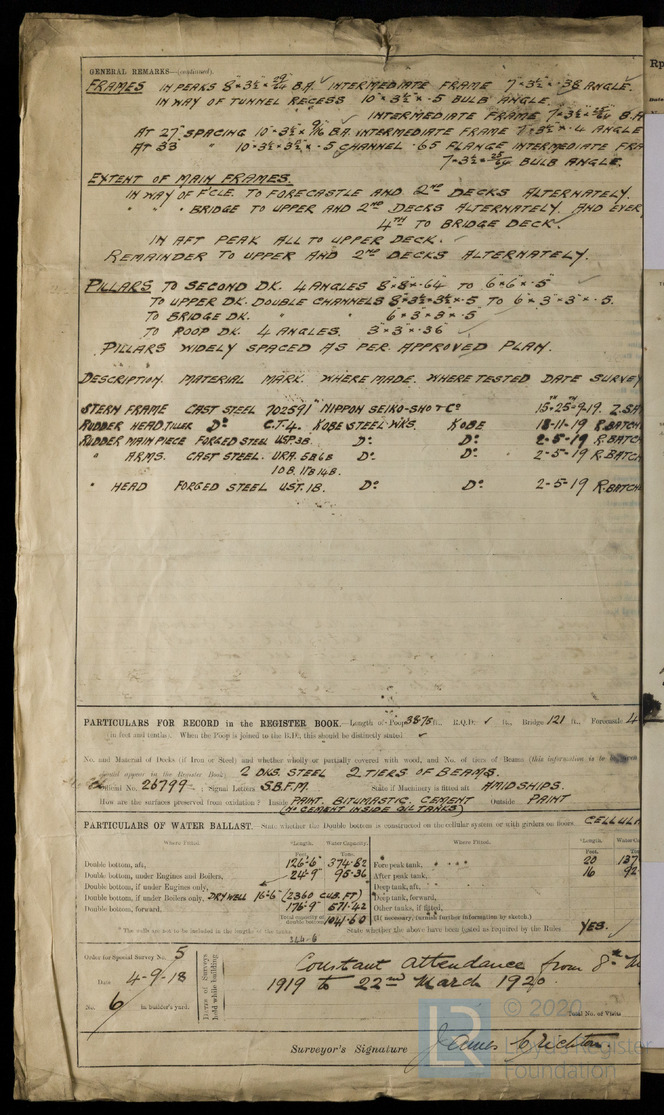 GENERAL REMARKS—(continued).
FRAMES IN PEAKS 8"×3½"× 29/64 B.A. ✓ INTERMEDIATE FRAME 7"×3½"×.38 ANGLE.
IN WAY OF TUNNEL RECESS 10"×3½"×.5 BULB ANGLE.
✓ INTERMEDIATE FRAME 7"×3½"× 25/64 B.A
AT 27" SPACING 10"×3½"× 9/16 B.A. INTERMEDIATE FRAME 7"×3½"×.4 ANGLE
AT 33 " 10"×3½"×3½"×.5 CHANNEL .65 FLANGE INTERMEDIATE FRA
7"×3½"× 25/64 BULB ANGLE.
EXTENT OF MAIN FRAMES.
IN WAY OF F'CLE. TO FORECASTLE AND 2ND DECKS ALTERNATELY.
" " " BRIDGE TO UPPER AND 2ND DECKS ALTERNATELY. AND EVER
4TH TO BRIDGE DECK.
IN AFT PEAK ALL TO UPPER DECK. ✓
REMAINDER TO UPPER AND 2ND DECKS ALTERNATELY.
PILLARS TO SECOND DK. 4 ANGLES 8"×8"×.64 TO 6"×6"×.5" ✓
TO UPPER DK. DOUBLE CHANNELS 8"×3½"×3½"×.5 TO 6"×3"×3"×.5.
TO BRIDGE DK. " " 6"×3"×3"×.5"
TO POOP DK. 4 ANGLES. 3"×3"×.36 ✓
PILLARS WIDELY SPACED AS PER. APPROVED PLAN.
DESCRIPTION. MATERIAL MARK. WHERE MADE. WHERE TESTED DATE SURVEY
STERN FRAME CAST STEEL 702591 NIPPON SEIKO-SHO & Co 15-25-9-19. Z.SH
RUDDER HEAD TILLER Do C.T.4. KOBE STEEL WKS. KOBE 18-11-19 R.BATCH
RUDDER MAIN PIECE FORGED STEEL USP.3B. Do Do 2-5-19 R.BATCH
" ARMS. CAST STEEL. URA. 5B6B Do Do 2-5-19 R.BATCH
10B. 11B 14B.
" HEAD FORGED STEEL UST.1B. Do Do 2-5-19 R.BATCH
PARTICULARS FOR RECORD in the REGISTER BOOK.—Length of Poop 38.75 ft., R.Q.D. ✓ ft., Bridge 121 ft., Forecastle 4
in feet and tenths. When the Poop is joined to the B.D., this should be distinctly stated ✓
No. and Material of Decks (if Iron or Steel) and whether wholly or partially covered with wood, and No. of tiers of Beams (this information is to be given
should appear in the Register Book) 2 DKS. STEEL 2 TIERS OF BEAMS.
Official No. 26799 ; Signal Letters S.B.F.M. State if Machinery is fitted aft AMIDSHIPS.
How are the surfaces preserved from oxidation? Inside PAINT. BITUMASTIC. CEMENT Outside PAINT
(NO CEMENT INSIDE OIL TANKS)
PARTICULARS OF WATER BALLAST.—State whether the Double bottom is constructed on the cellular system or with girders on floors. CELLULA
Where Fitted. *Length. Water Capacity. Where Fitted. *Length. Water C
Feet. Tons. Feet. Ton
Double bottom, aft, 126'-6" 374.82 Fore peak tank, 20 137
Double bottom, under Engines and Boilers, 24'-9" 95.36 After peak tank, 16 92
Double bottom, if under Engines only, Deep tank, aft,
Double bottom, if under Boilers only, DRY WELL 16'-6" (2360 CUB. FT) Deep tank, forward,
Double bottom, forward, 176'-9" 571.42 Other tanks, if fitted,
Total capacity of double bottom 1041.60 (If necessary, furnish further information by sketch.)
* The wells are not to be included in the lengths of the tanks State whether the above have been tested as required by the Rules YES.
344-6
Order for Special Survey No. 5
Date 4-9-18
No. 6 in builder's yard.
Dates of Surveys held while building
Constant attendance from 8th M
1919 to 22nd March 1920.
Total No. of Visits
Surveyor's Signature James Crichton.
© 2020
Lloyd's Register
Foundation
LR
Rp